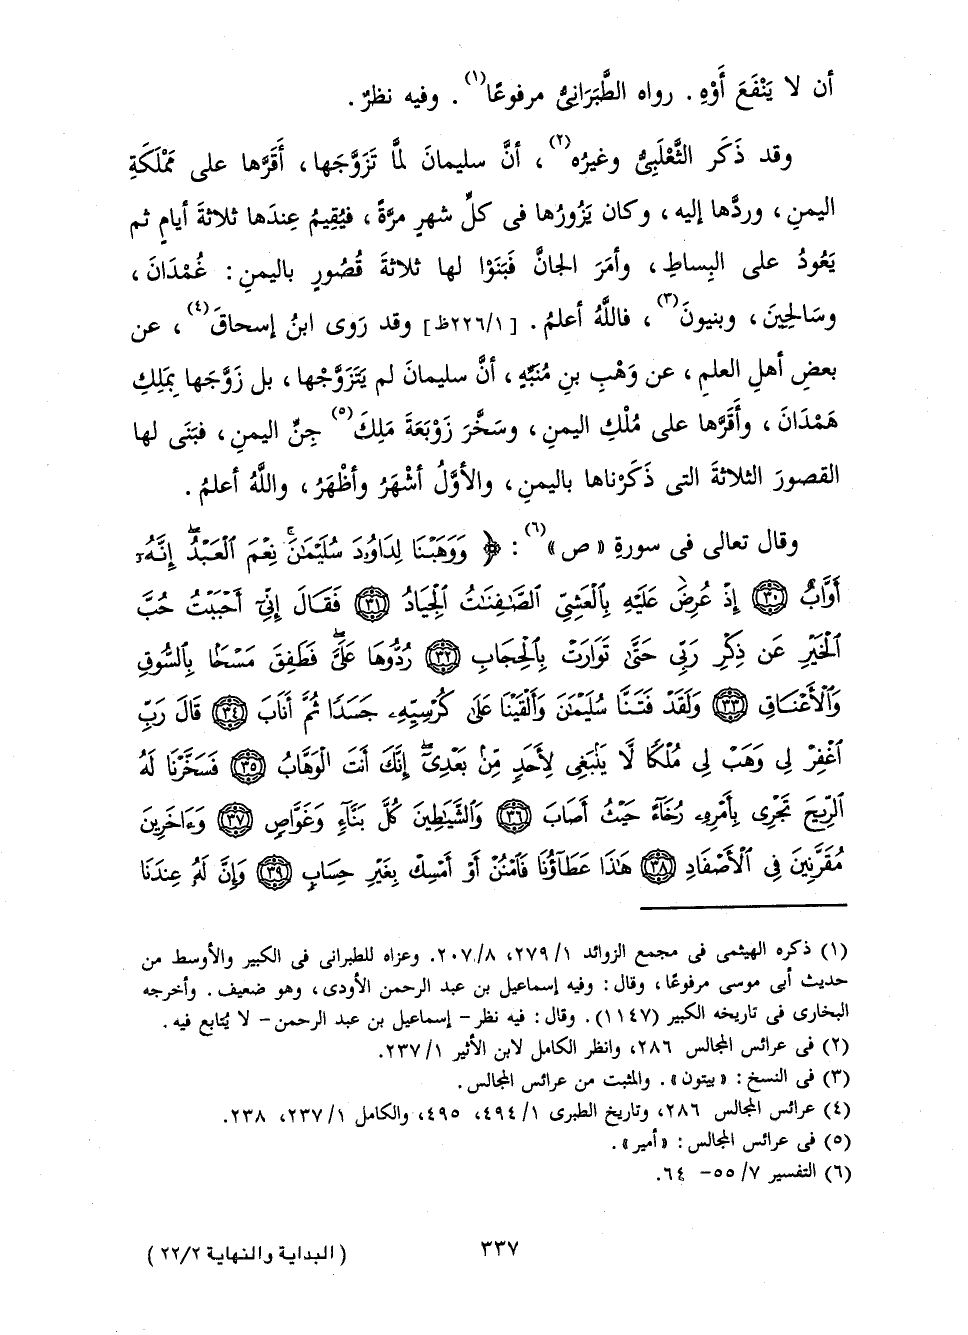 أن لا يَنْفَعَ أَوْهِ . رواه الطَّبَرَانِىُّ مرفوعًا(١) . وفيه نظرٌ .
وقد ذَكَر الثَّعْلَبِىُّ وغيرُه(٢) ، أنَّ سليمانَ لمَّا تَزَوَّجَها ، أَقَرَّها على مَمْلَكَةِ
اليمنِ ، وردَّها إليه ، وكان يَزُورُها فى كلِّ شهرٍ مرَّةً ، فيُقِيمُ عِندَها ثلاثةَ أيامٍ ثم
يَعُودُ على البِساطِ ، وأمَرَ الجانَّ فَبَنَوْا لها ثلاثةَ قُصُورٍ باليمنِ : غُمْدَانَ ،
وسَالِحِينَ ، وبنيونَ(٣) ، فاللَّهُ أعلمُ . [٢٢٦/١ظ] وقد رَوى ابنُ إسحاقَ(٤) ، عن
بعضِ أهلِ العلمِ ، عن وَهْبِ بنِ مُنَبِّهٍ ، أنَّ سليمانَ لم يَتَزَوَّجْها ، بل زَوَّجَها بِمَلِكِ
هَمْدَانَ ، وأَقَرَّها على مُلْكِ اليمنِ ، وسَخَّرَ زَوْبَعَةَ مَلِكَ(٥) جِنِّ اليمنِ ، فبَنَى لها
القصورَ الثلاثةَ التى ذَكَرْناها باليمنِ ، والأوَّلُ أشْهَرُ وأظْهَرُ ، واللَّهُ أعلمُ .
وقال تعالى فى سورةِ « ص »(٦) : ﴿ وَوَهَبْنَا لِدَاوُۥدَ سُلَيْمَٰنَۚ نِعْمَ ٱلْعَبْدُۖ إِنَّهُۥٓ
أَوَّابٌ ﴿٣٠﴾ إِذْ عُرِضَ عَلَيْهِ بِٱلْعَشِىِّ ٱلصَّٰفِنَٰتُ ٱلْجِيَادُ ﴿٣١﴾ فَقَالَ إِنِّىٓ أَحْبَبْتُ حُبَّ
ٱلْخَيْرِ عَن ذِكْرِ رَبِّى حَتَّىٰ تَوَارَتْ بِٱلْحِجَابِ ﴿٣٢﴾ رُدُّوهَا عَلَىَّۖ فَطَفِقَ مَسْحًۢا بِٱلسُّوقِ
وَٱلْأَعْنَاقِ ﴿٣٣﴾ وَلَقَدْ فَتَنَّا سُلَيْمَٰنَ وَأَلْقَيْنَا عَلَىٰ كُرْسِيِّهِۦ جَسَدًا ثُمَّ أَنَابَ ﴿٣٤﴾ قَالَ رَبِّ
ٱغْفِرْ لِى وَهَبْ لِى مُلْكًا لَّا يَنۢبَغِى لِأَحَدٍ مِّنۢ بَعْدِىٓۖ إِنَّكَ أَنتَ ٱلْوَهَّابُ ﴿٣٥﴾ فَسَخَّرْنَا لَهُ
ٱلرِّيحَ تَجْرِى بِأَمْرِهِۦ رُخَآءً حَيْثُ أَصَابَ ﴿٣٦﴾ وَٱلشَّيَٰطِينَ كُلَّ بَنَّآءٍ وَغَوَّاصٍ ﴿٣٧﴾ وَءَاخَرِينَ
مُقَرَّنِينَ فِى ٱلْأَصْفَادِ ﴿٣٨﴾ هَٰذَا عَطَآؤُنَا فَٱمْنُنْ أَوْ أَمْسِكْ بِغَيْرِ حِسَابٍ ﴿٣٩﴾ وَإِنَّ لَهُۥ عِندَنَا
(١) ذكره الهيثمى فى مجمع الزوائد ٢٧٩/١، ٢٠٧/٨. وعزاه للطبرانى فى الكبير والأوسط من
حديث أبى موسى مرفوعًا ، وقال : وفيه إسماعيل بن عبد الرحمن الأودى ، وهو ضعيف . وأخرجه
البخارى فى تاريخه الكبير (١١٤٧) . وقال : فيه نظر - إسماعيل بن عبد الرحمن - لا يُتابع فيه .
(٢) فى عرائس المجالس ٢٨٦، وانظر الكامل لابن الأثير ٢٣٧/١.
(٣) فى النسخ : « بيتون » . والمثبت من عرائس المجالس .
(٤) عرائس المجالس ٢٨٦، وتاريخ الطبرى ٤٩٤/١، ٤٩٥، والكامل ٢٣٧/١، ٢٣٨.
(٥) فى عرائس المجالس : « أمير » .
(٦) التفسير ٥٥/٧ - ٦٤.
٣٣٧
( البداية والنهاية ٢٢/٢ )